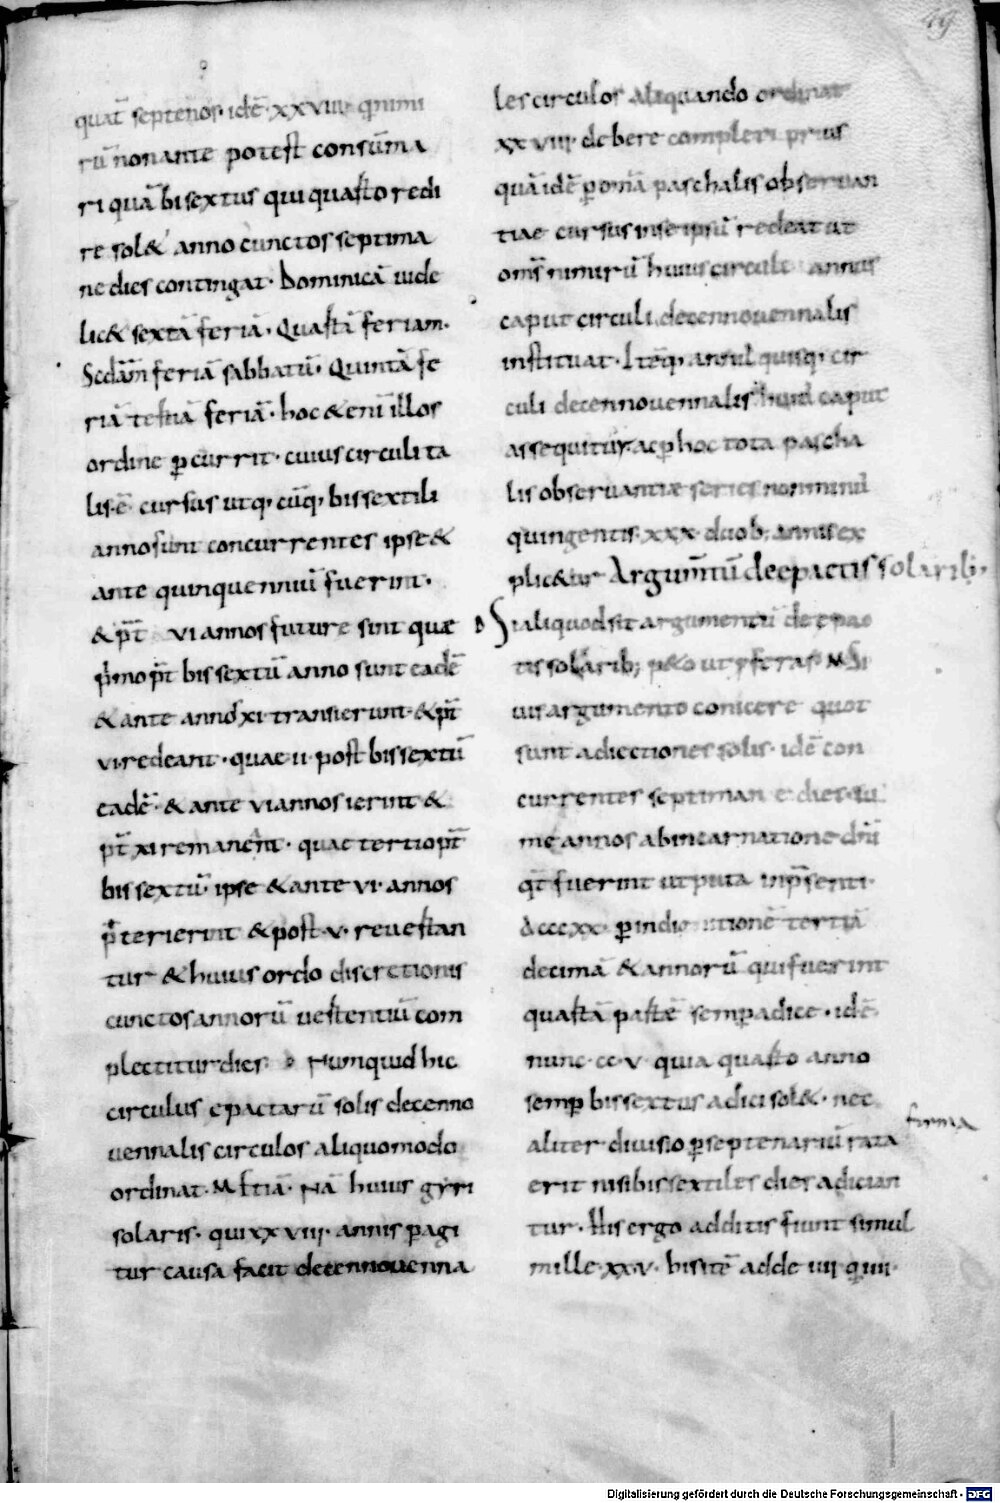 49
quat̄ septenos · idē · xxviii · qm̄ mi
rū non ante potest consūma
ri quā bisextus qui quarto redi
re sol& anno cunctos septima
ne dies contingat · Dominicā uide
lic& sextā feriā · Quartā feriam ·
Scdām feriā sabbatū · Quintā fe
riā tertiā feriā · hoc & enī illos
ordine ꝑcurrit · cuius circuli ta
lis · ē cursus utq · cūq · bissextili
anno sunt concurrentes ipse &
ante quinquenniū fuerint ·
& pt̄ vi annos future sint quae
p̄imo pt̄ bissextū anno sunt eadē
& ante annos xi transierunt · & pt̄
vi redeant · quae ii · post bissextū
eadē · & ante vi annos ierint &
pt̄ xi remanent · quae tertio pt̄
bissextū · ipse & ante vi · annos
p̄terierint & post · v · reuertan
tur & huius ordo discretionis
cunctos annorū uertentiū com
plectitur dies · Numquid hic
circulus epactarū solis decenno
uennalis circulos aliquomodo
ordinat · M &tiā · Nā huius gyri
solaris · qui xxviii · annis ꝑagi
tur causa facit decennouenna
les circulos aliquando ordinat
xxviii · debere compleri prius
quā idē ꝑ omā paschalis obseruan
tiae cursus inse ipsū redeat ut
oms̄ nimirū huius circuli annus
caput circuli decennouennalis
instituat · Itēq, annus quisq, cir
culi decennouennalis huius caput
assequitur · ac ꝑ hoc tota pascha
lis obseruantiae series non minus
quingentis · xxx · duob; annis ex
plic&ur Argumtū de epactis solarib;
D Si aliquod sit argumentū de epac
tis solarib;
uis argumento conicere quot
sunt adiectiones solis · idē con
currentes septimane dies · su
me annos ab incarnatione dn̄i
qt̄ fuerint ut puta inp̄senti ·
dcccxx · ꝑ indictionē tertiā
decimā & annorū qui fuerint
quartā partē semꝑ adice · idē
nunc · cc · v · quia quarto anno
semꝑ bissextus adici sol& · nec
aliter diuisio ꝑ septenariū rata
firma
erit nisi bissextiles dies adician
tur · His ergo additis fiunt simul
mille · xxv · his itē adde iiii q iiii ·
Digitalisierung gefördert durch die Deutsche Forschungsgemeinschaft - DFG